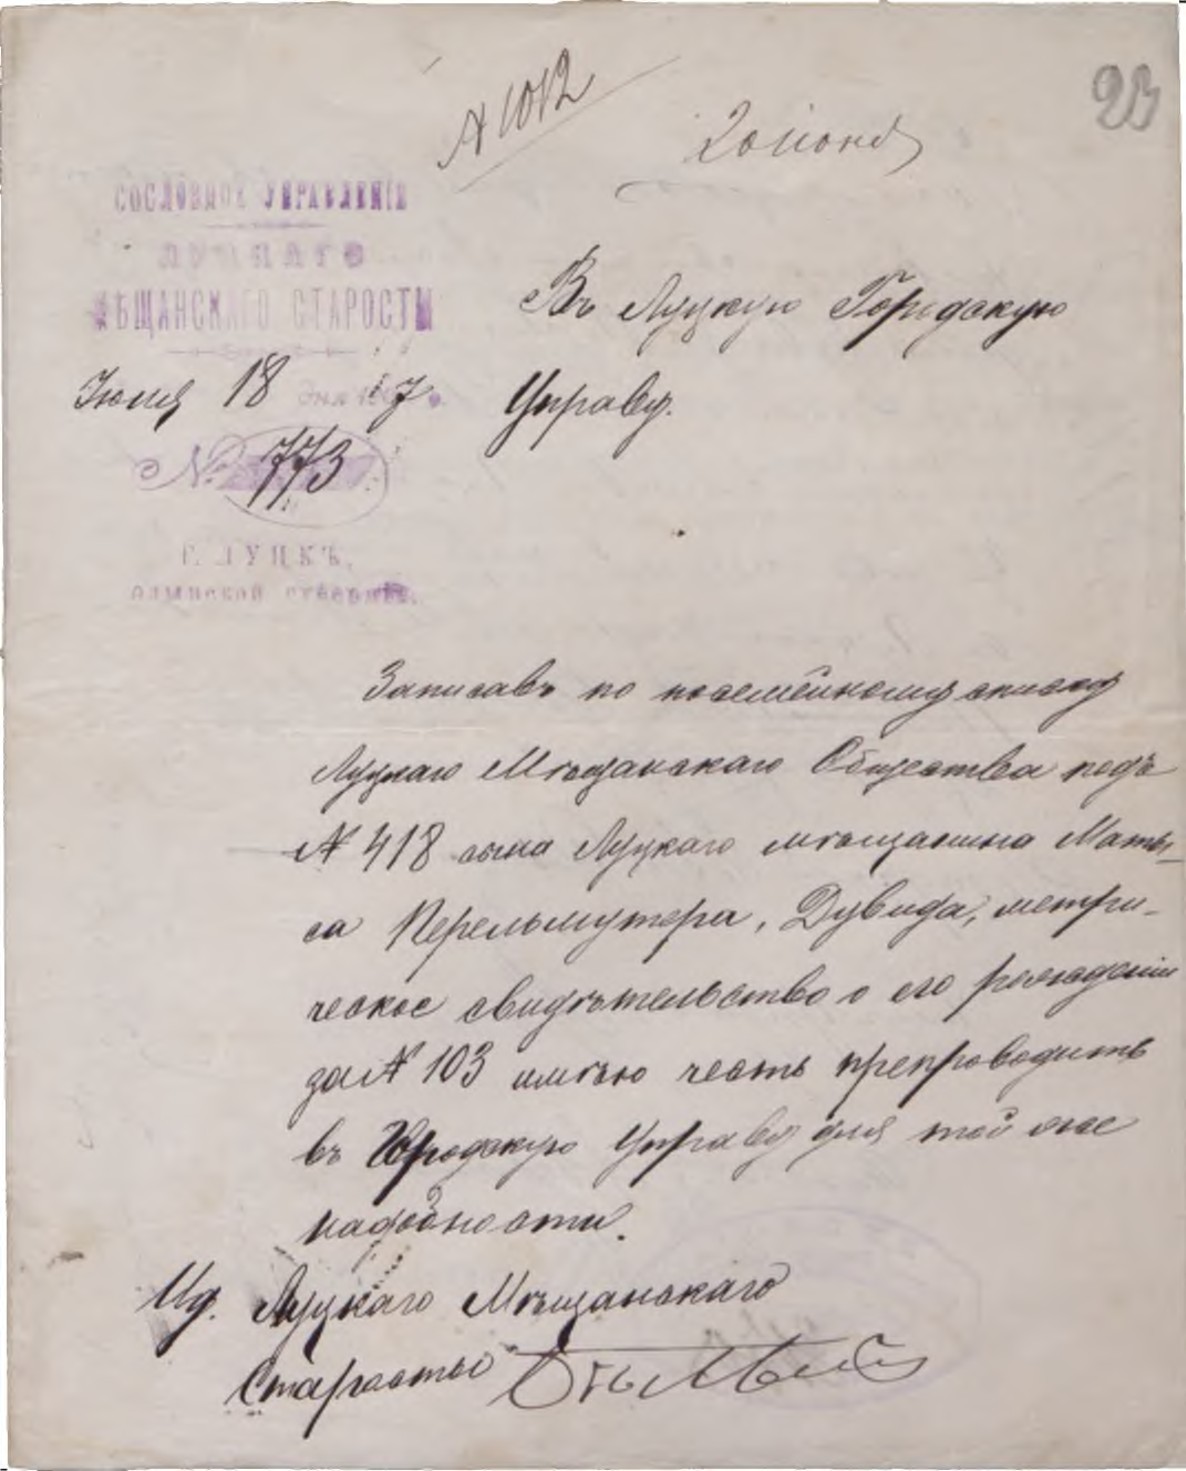 23
№ 1012
20 июня
СОСЛОВНОЕ УПРАВЛЕНІЕ
ЛУЦКАГО
МѢЩАНСКАГО СТАРОСТЫ
Июня 18 дня 1 7 г.
№ 773
Г. ЛУЦКЪ,
Волынской губерніи.
Въ Луцкую Городскую
Управу.
Записавъ по посемейному списку
Луцкаго Мѣщанскаго Общества подъ
№ 418 сына Луцкаго мѣщанина Маты-
са Перельмутера, Дувида, метри-
ческое свидѣтельство о его рожденіи
за № 103 имѣю честь препроводить
въ Городскую Управу для той же
надобности.
Ид. Луцкаго Мѣщанскаго
Старосты